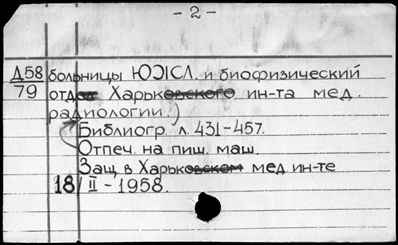 - 2 -
Д58 больницы ЮЖ.Л. и биофизический
79 отдел Харьковского ин-та мед.
радиологии.)
Библиогр. л. 431-457.
Отпеч. на пиш. маш.
Защ. в Харьковском мед ин-те
18/II - 1958.